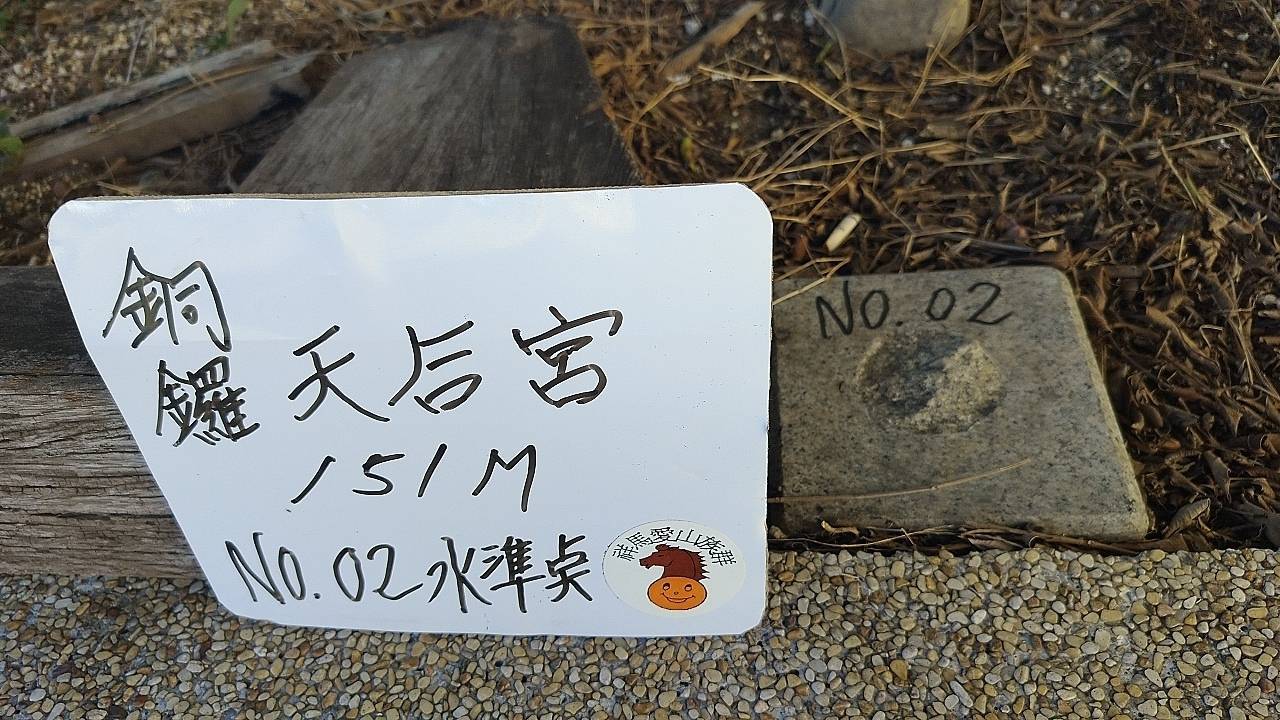 銅鑼 天后宮
151M
No.02 水準点
群馬愛山族群
NO.02